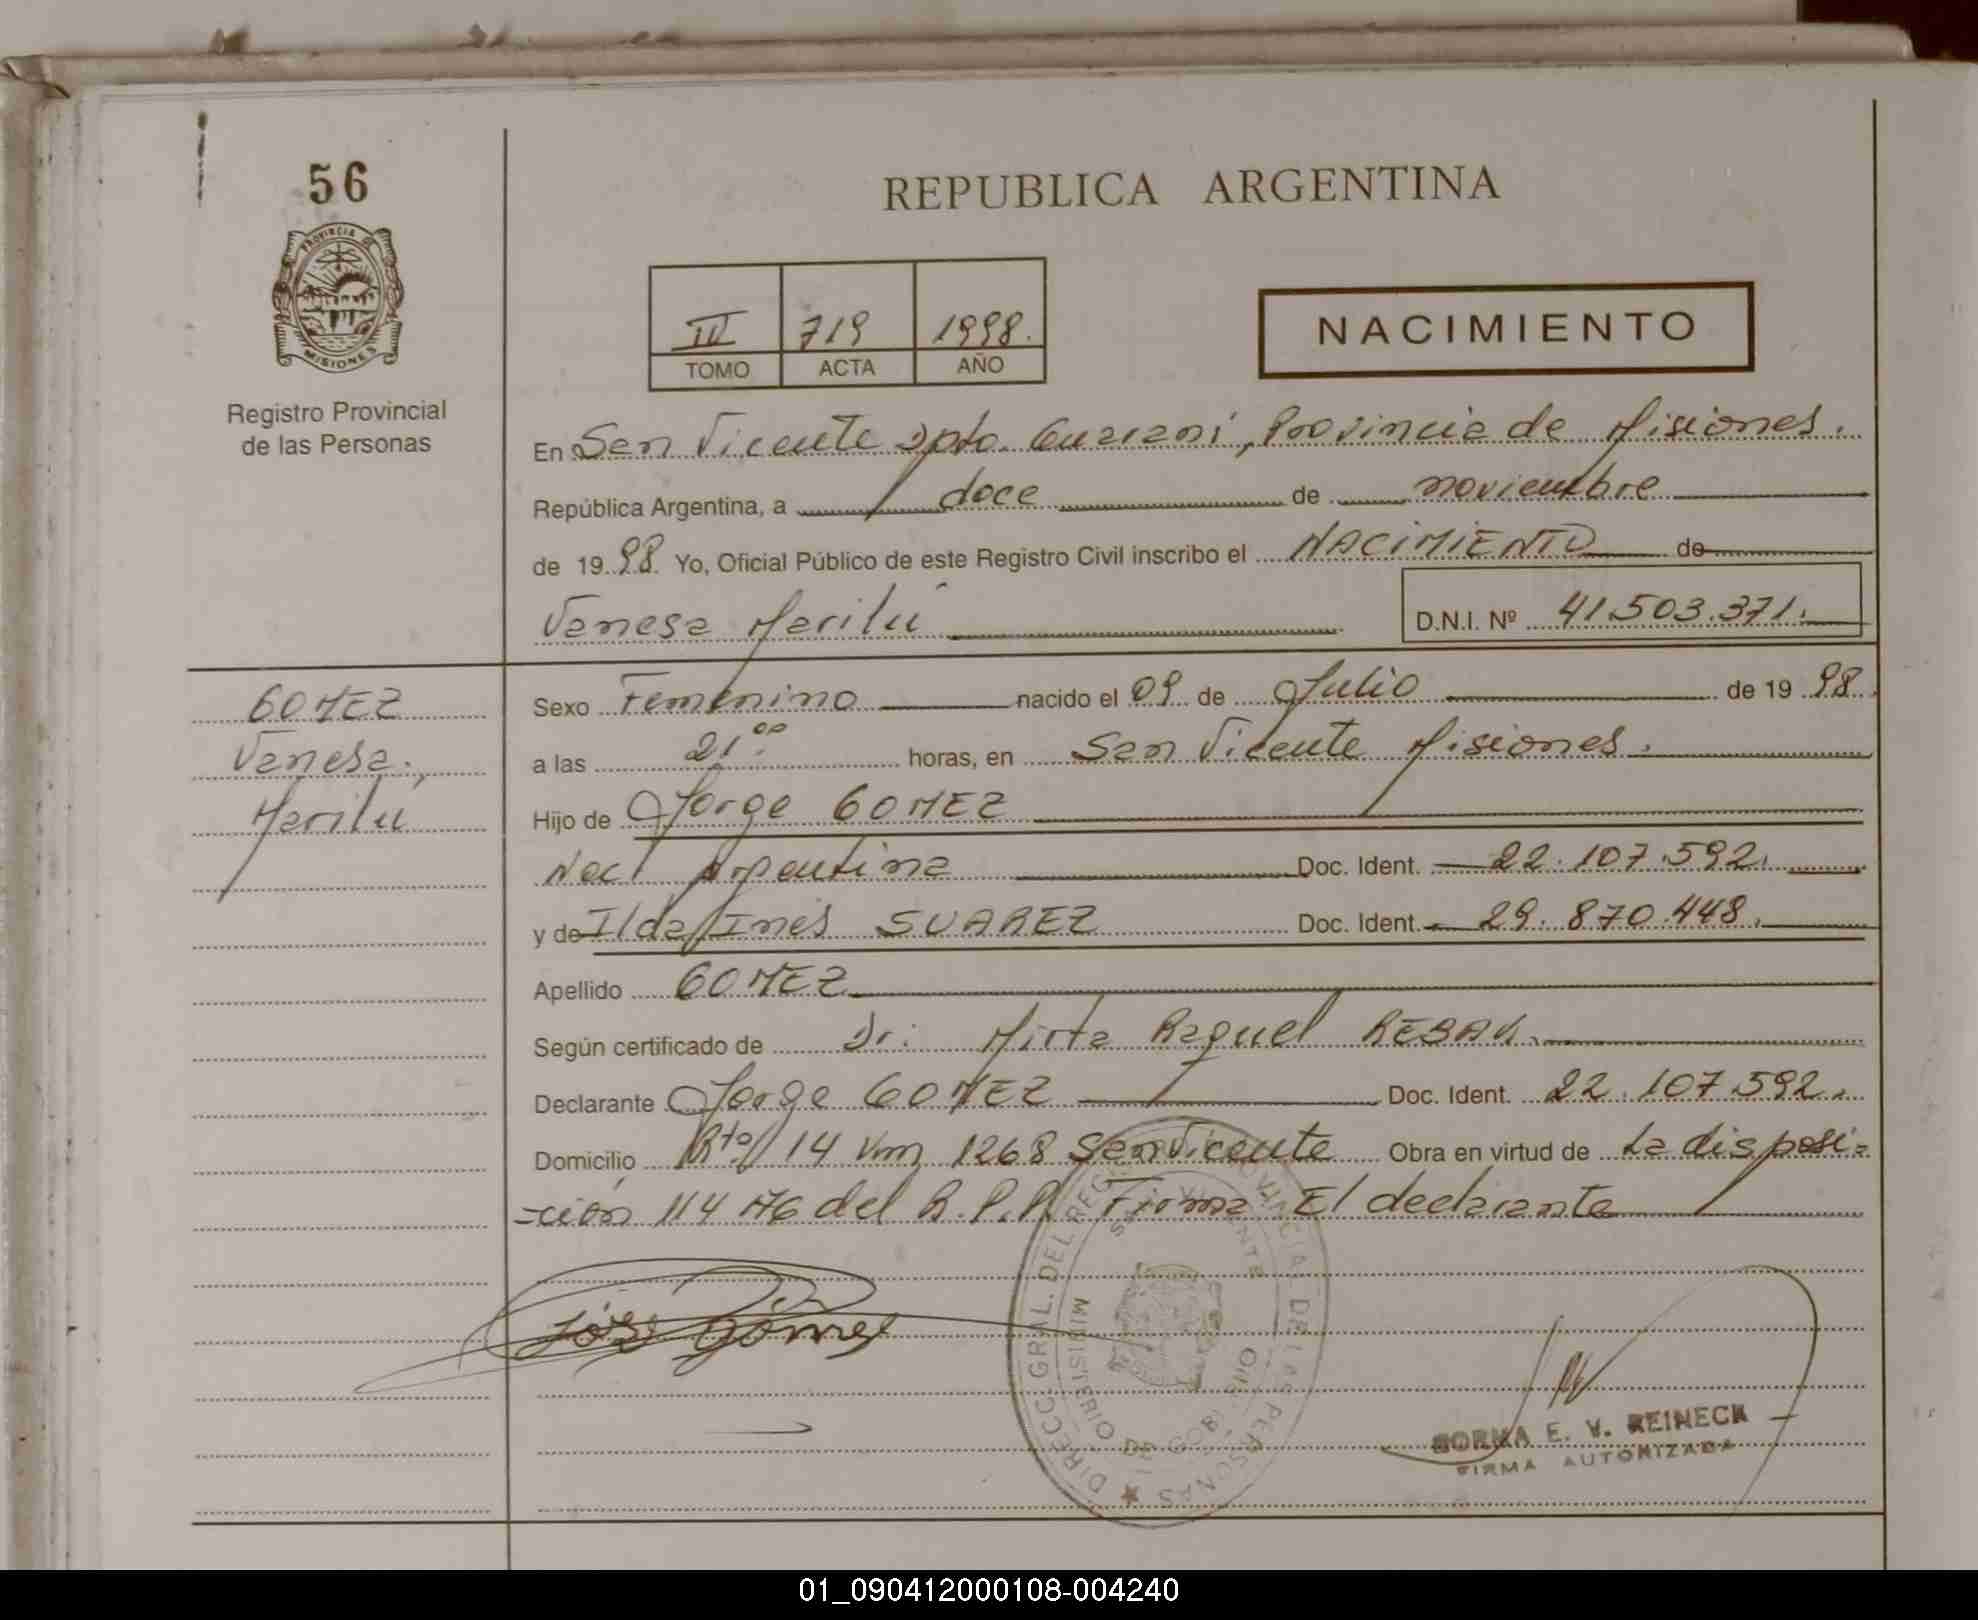 56
PROVINCIA DE
MISIONES
Registro Provincial
de las Personas
REPUBLICA ARGENTINA
III 719 1998.
TOMO ACTA AÑO
NACIMIENTO
En San Vicente Dpto. Guarani, Provincia de Misiones.
República Argentina, a doce de noviembre
de 1998 Yo, Oficial Público de este Registro Civil inscribo el NACIMIENTO de
Vanesa Marilú D.N.I. Nº 41.503.371.
GOMEZ
Vanesa
Marilu
Sexo Femenino nacido el 09 de Julio de 1998
a las 21:00 horas, en San Vicente Misiones.
Hijo de Jorge GOMEZ
Nac Argentina Doc. Ident. 22.107.592.
y de Ilda Inés SUAREZ Doc. Ident. 29.870.448.
Apellido GOMEZ
Según certificado de Dr. Mirta Raquel
Declarante Jorge GOMEZ Doc. Ident. 22.107.592.
Domicilio Rta 14 Km 1268 San Vicente Obra en virtud de La disposi-
-ción 114/76 del R.P.P. Firma El declarante
DIRECC. GRAL. DEL REG. PROVINCIAL DE LAS PERSONAS
MINISTERIO DE GOBIERNO
SAN VICENTE
NORMA E. V. REINECK
FIRMA AUTORIZADA
01_090412000108-004240